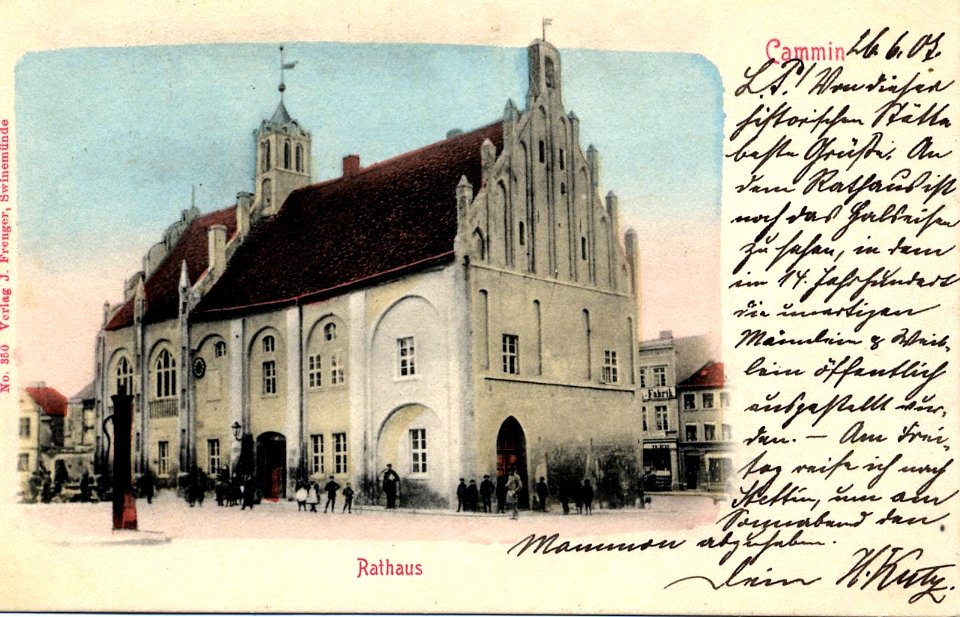 Cammin
26.6.07.
L. P.! Von dieser
historischen Stätte
beste Grüße. An
dem Rathaus ist
noch das Halseisen
zu sehen, in dem
im 14. Jahrhundert
die unartigen
Männlein & Weib-
lein öffentlich
ausgestellt wur-
den. – Am Frei-
tag reise ich nach
Stettin, um am
Sonnabend den
Mammon abzuheben.
Dein H. Kutz.
Rathaus
No. 350 Verlag J. Frenger, Swinemünde
Fabrik